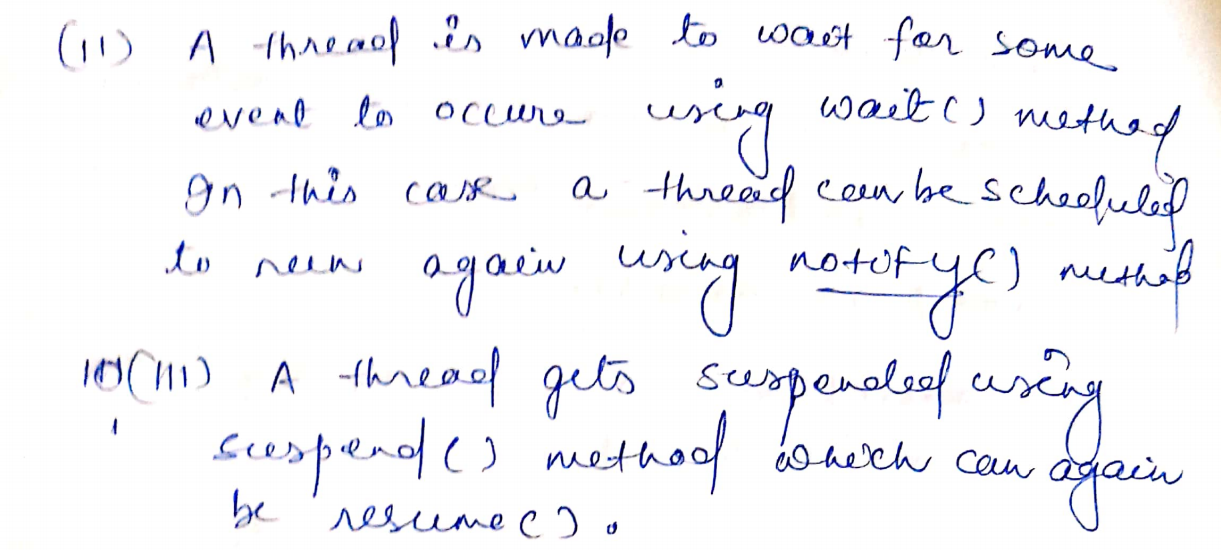 (11) A thread is made to wait for some
event to occure using wait() method
In this case a thread can be scheduled
to run again using notify() method
10(111) A thread gets suspended using
suspend() method which can again
be resume().